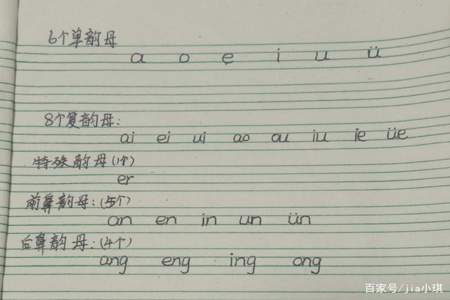 6个单韵母
a o e i u ü
8个复韵母:
ai ei ui ao ou iu ie üe
特殊韵母(1个)
er
前鼻韵母:(5个)
an en in un ün
后鼻韵母:(4个)
ang eng ing ong
百家号/jia小琪